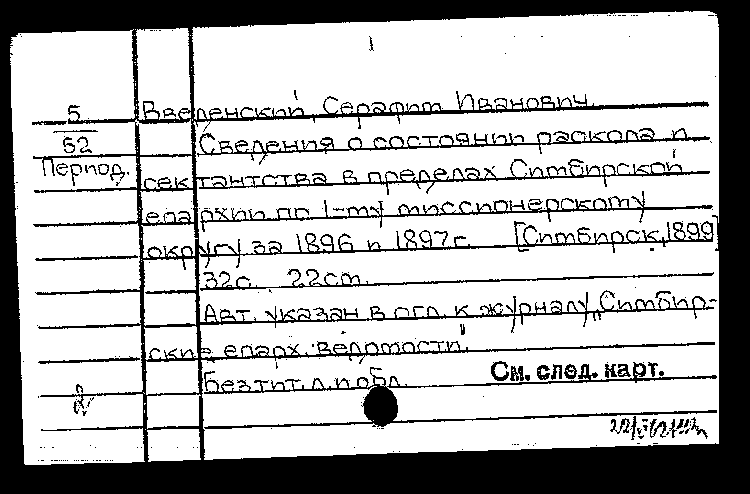 1
5
52
Период.
Введенский, Серафим Иванович.
Сведения о состоянии раскола и
сектантства в пределах Симбирской
епархии по 1-му миссионерскому
округу за 1896 и 1897 г. [Симбирск, 1899]
32с. 22см.
Авт. указан в огл. к журналу „Симбир-
ские епарх. ведомости".
Без тит. л. и обл.
См. след. карт.